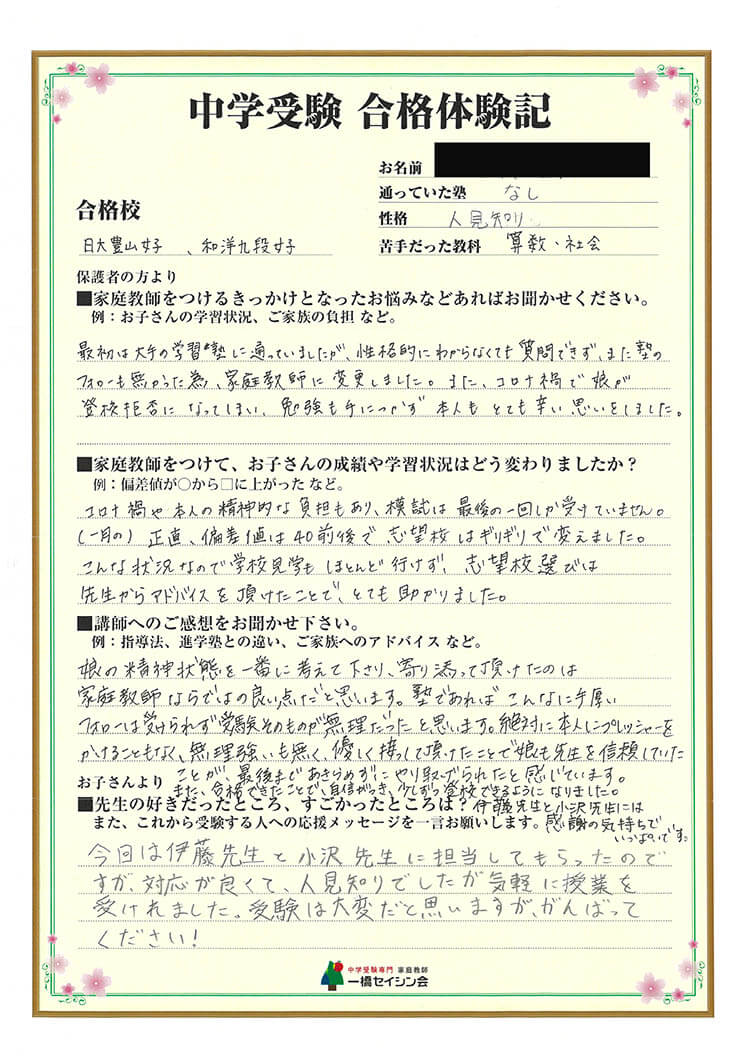 中学受験 合格体験記
お名前
通っていた塾 なし
合格校
性格 人見知り
日大豊山女子 、和洋九段女子
苦手だった教科 算数・社会
保護者の方より
■家庭教師をつけるきっかけとなったお悩みなどあればお聞かせください。
例：お子さんの学習状況、ご家族の負担 など。
最初は大手の学習塾に通っていましたが、性格的にわからなくても質問できず、また塾の
フォローも無かった為、家庭教師に変更しました。また、コロナ禍で娘が
登校拒否になってしまい、勉強も手につかず本人もとても辛い思いをしました。
■家庭教師をつけて、お子さんの成績や学習状況はどう変わりましたか？
例：偏差値が○から□に上がった など。
コロナ禍や本人の精神的な負担もあり、模試は最後の一回しか受けていません。
(一月の) 正直、偏差値は40前後で志望校はギリギリで変えました。
こんな状況なので学校見学もほとんど行けず、志望校選びは
先生からアドバイスを頂けたことで、とても助かりました。
■講師へのご感想をお聞かせ下さい。
例：指導法、進学塾との違い、ご家族へのアドバイス など。
娘の精神状態を一番に考えて下さり、寄り添って頂けたのは
家庭教師ならではの良い点だと思います。塾であればこんなに手厚い
フォローは受けられず受験そのものが無理だったと思います。絶対に本人にプレッシャーを
かけることもなく、無理強いも無く、優しく接して頂けたことで娘も先生を信頼していた
ことが、最後まであきらめずにやり遂げられたと感じています。
また、合格できたことで、自信がつき、少しずつ登校できるようになりました。
伊藤先生と小沢先生には
感謝の気持ちで
いっぱいです。
お子さんより
■先生の好きだったところ、すごかったところは？
また、これから受験する人への応援メッセージを一言お願いします。
今回は伊藤先生と小沢先生に担当してもらったので
すが、対応が良くて、人見知りでしたが気軽に授業を
受けれました。受験は大変だと思いますが、がんばって
ください！
中学受験専門 家庭教師
一橋セイシン会